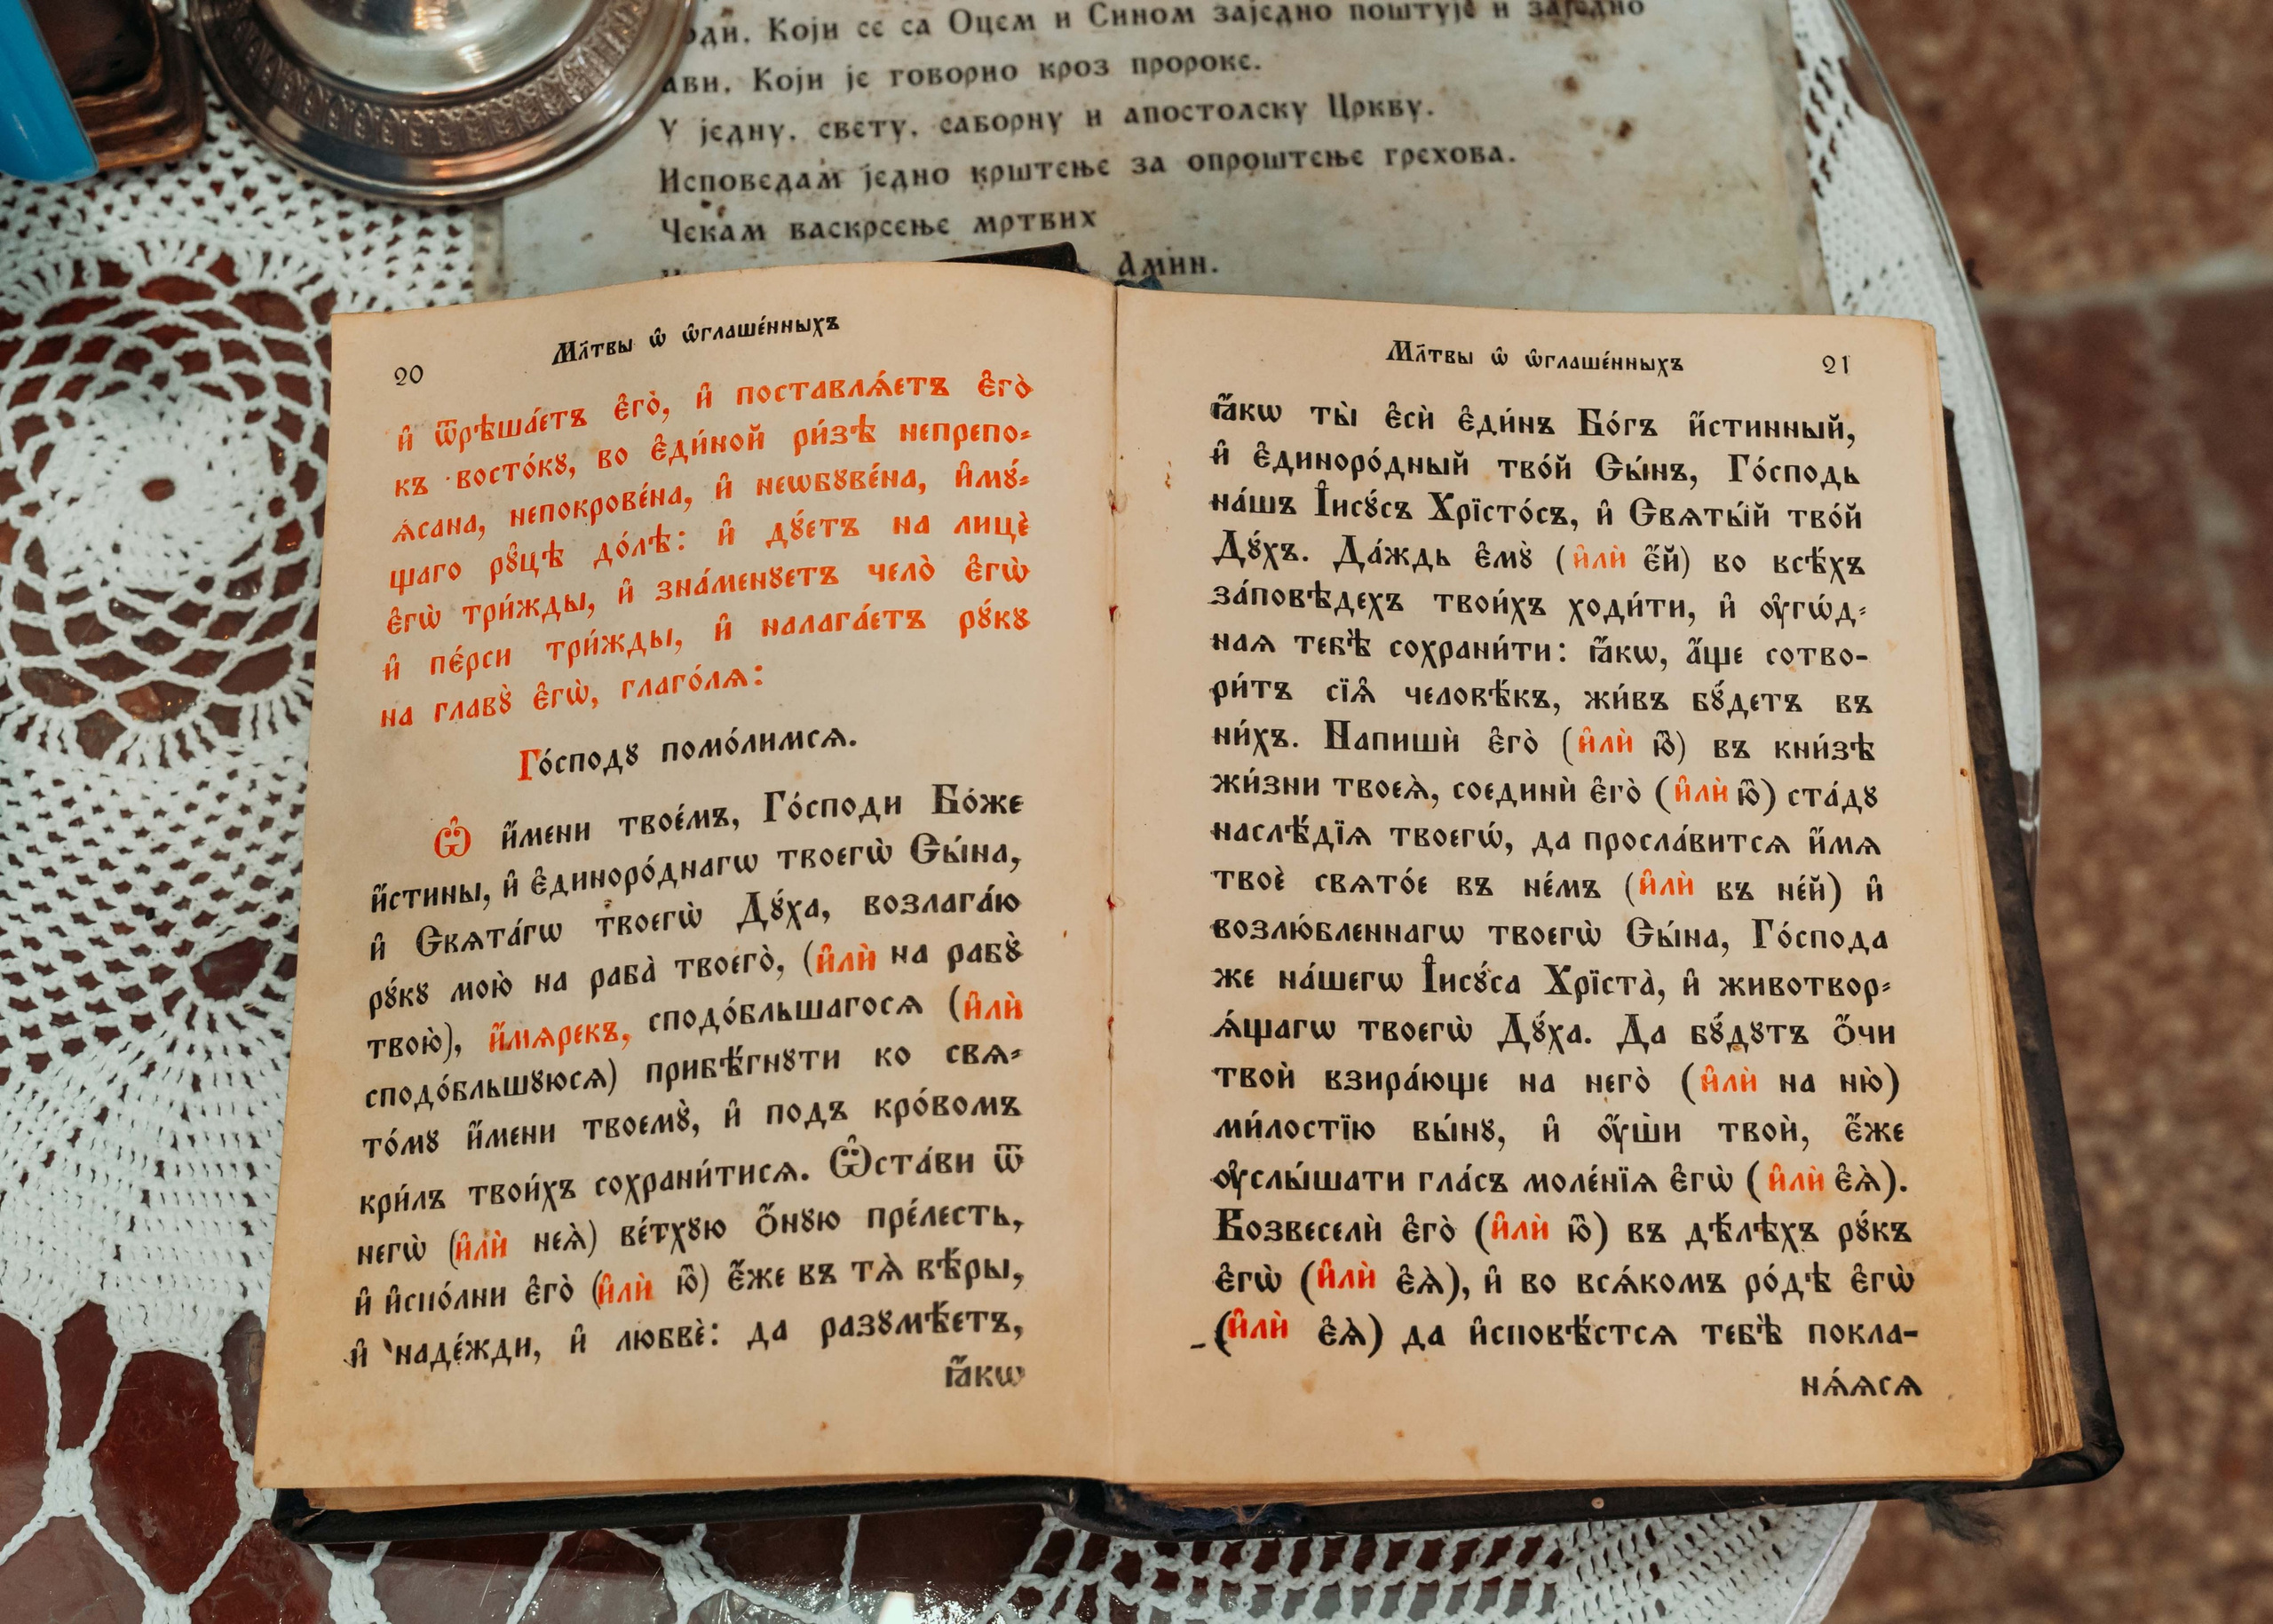 Који се са Оцем и Сином заједно поштује и заједно
Који је говорио кроз пророке.
У једну, свету, саборну и апостолску Цркву.
Исповедам једно крштење за опроштење грехова.
Чекам васкрсење мртвих
Амин.
20
Мл҃твы ѡ҆ ѡ҆глаше́нныхъ
и҆ ѿрѣша́етъ є҆го̀, и҆ поставлѧ́етъ є҆го̀
къ восто́кꙋ, во є҆ди́ной ри́зѣ непрепо-
ѧ́сана, непокрове́на, и҆ неѡбꙋве́на, и҆мꙋ́-
щаго рꙋ̑цѣ до́лѣ: и҆ дꙋ́етъ на лицѐ
є҆гѡ̀ три́жды, и҆ зна́менꙋетъ чело̀ є҆гѡ̀
и҆ пе́рси три́жды, и҆ налага́етъ рꙋ́кꙋ
на главꙋ̀ є҆гѡ̀, глаго́лѧ:
Го́сподꙋ помо́лимсѧ.
Ѽ и҆́мени твое́мъ, Го́споди Бо́же
и҆́стины, и҆ є҆диноро́днагѡ твоегѡ̀ Сы́на,
и҆ Свѧта́гѡ твоегѡ̀ Дꙋ́ха, возлага́ю
рꙋ́кꙋ мою̀ на раба̀ твоего̀, (и҆лѝ на рабꙋ̀
твою̀), и҆́мѧрекъ, сподо́бльшагосѧ (и҆лѝ
сподо́бльшꙋюсѧ) прибѣ́гнꙋти ко свѧ-
то́мꙋ и҆́мени твоемꙋ̀, и҆ подъ кро́вомъ
кри́лъ твои́хъ сохрани́тисѧ. Ѽста́ви ѿ
негѡ̀ (и҆лѝ неѧ̀) ве́тхꙋю ѻ҆́нꙋю пре́лесть,
и҆ и҆спо́лни є҆го̀ (и҆лѝ ю҆̀) є҆́же въ тѧ̀ вѣ́ры,
и҆ наде́жди, и҆ любвѐ: да разꙋмѣ́етъ,
ꙗ҆́кѡ
Мл҃твы ѡ҆ ѡ҆глаше́нныхъ
21
ꙗ҆́кѡ ты̀ є҆сѝ є҆ди́нъ Бо́гъ и҆́стинный,
и҆ є҆диноро́дный тво́й Сы́нъ, Го́сподь
на́шъ І҆исꙋ́съ Хрїсто́съ, и҆ Свѧты́й тво́й
Дꙋ́хъ. Да́ждь є҆мꙋ̀ (и҆лѝ є҆́й) во всѣ́хъ
за́повѣдехъ твои́хъ ходи́ти, и҆ ᲂу҆гѡ́д-
наѧ тебѣ̀ сохрани́ти: ꙗ҆́кѡ, а҆́ще сотво-
ри́тъ сїѧ̑ человѣ́къ, жи́въ бꙋ́детъ въ
ни́хъ. Напишѝ є҆го̀ (и҆лѝ ю҆̀) въ кни́зѣ
жи́зни твоеѧ̀, соединѝ є҆го̀ (и҆лѝ ю҆̀) ста́дꙋ
наслѣ́дїѧ твоегѡ́, да просла́витсѧ и҆́мѧ
твоѐ свѧто́е въ не́мъ (и҆лѝ въ не́й) и҆
возлю́бленнагѡ твоегѡ̀ Сы́на, Го́спода
же на́шегѡ І҆исꙋ́са Хрїста̀, и҆ животвор-
ѧ́щагѡ твоегѡ̀ Дꙋ́ха. Да бꙋ́дꙋтъ ѻ҆́чи
твоѝ взира́юще на него̀ (и҆лѝ на ню̀)
ми́лостїю вы́нꙋ, и҆ ᲂу҆́шѝ твоѝ, є҆́же
ᲂу҆слы́шати гла́съ моле́нїѧ є҆гѡ̀ (и҆лѝ є҆ѧ̀).
Возвеселѝ є҆го̀ (и҆лѝ ю҆̀) въ дѣ́лѣхъ рꙋ́къ
є҆гѡ̀ (и҆лѝ є҆ѧ̀), и҆ во всѧ́комъ ро́дѣ є҆гѡ̀
(и҆лѝ є҆ѧ̀) да и҆сповѣ́стсѧ тебѣ̀ покла-
нѧ́ѧсѧ